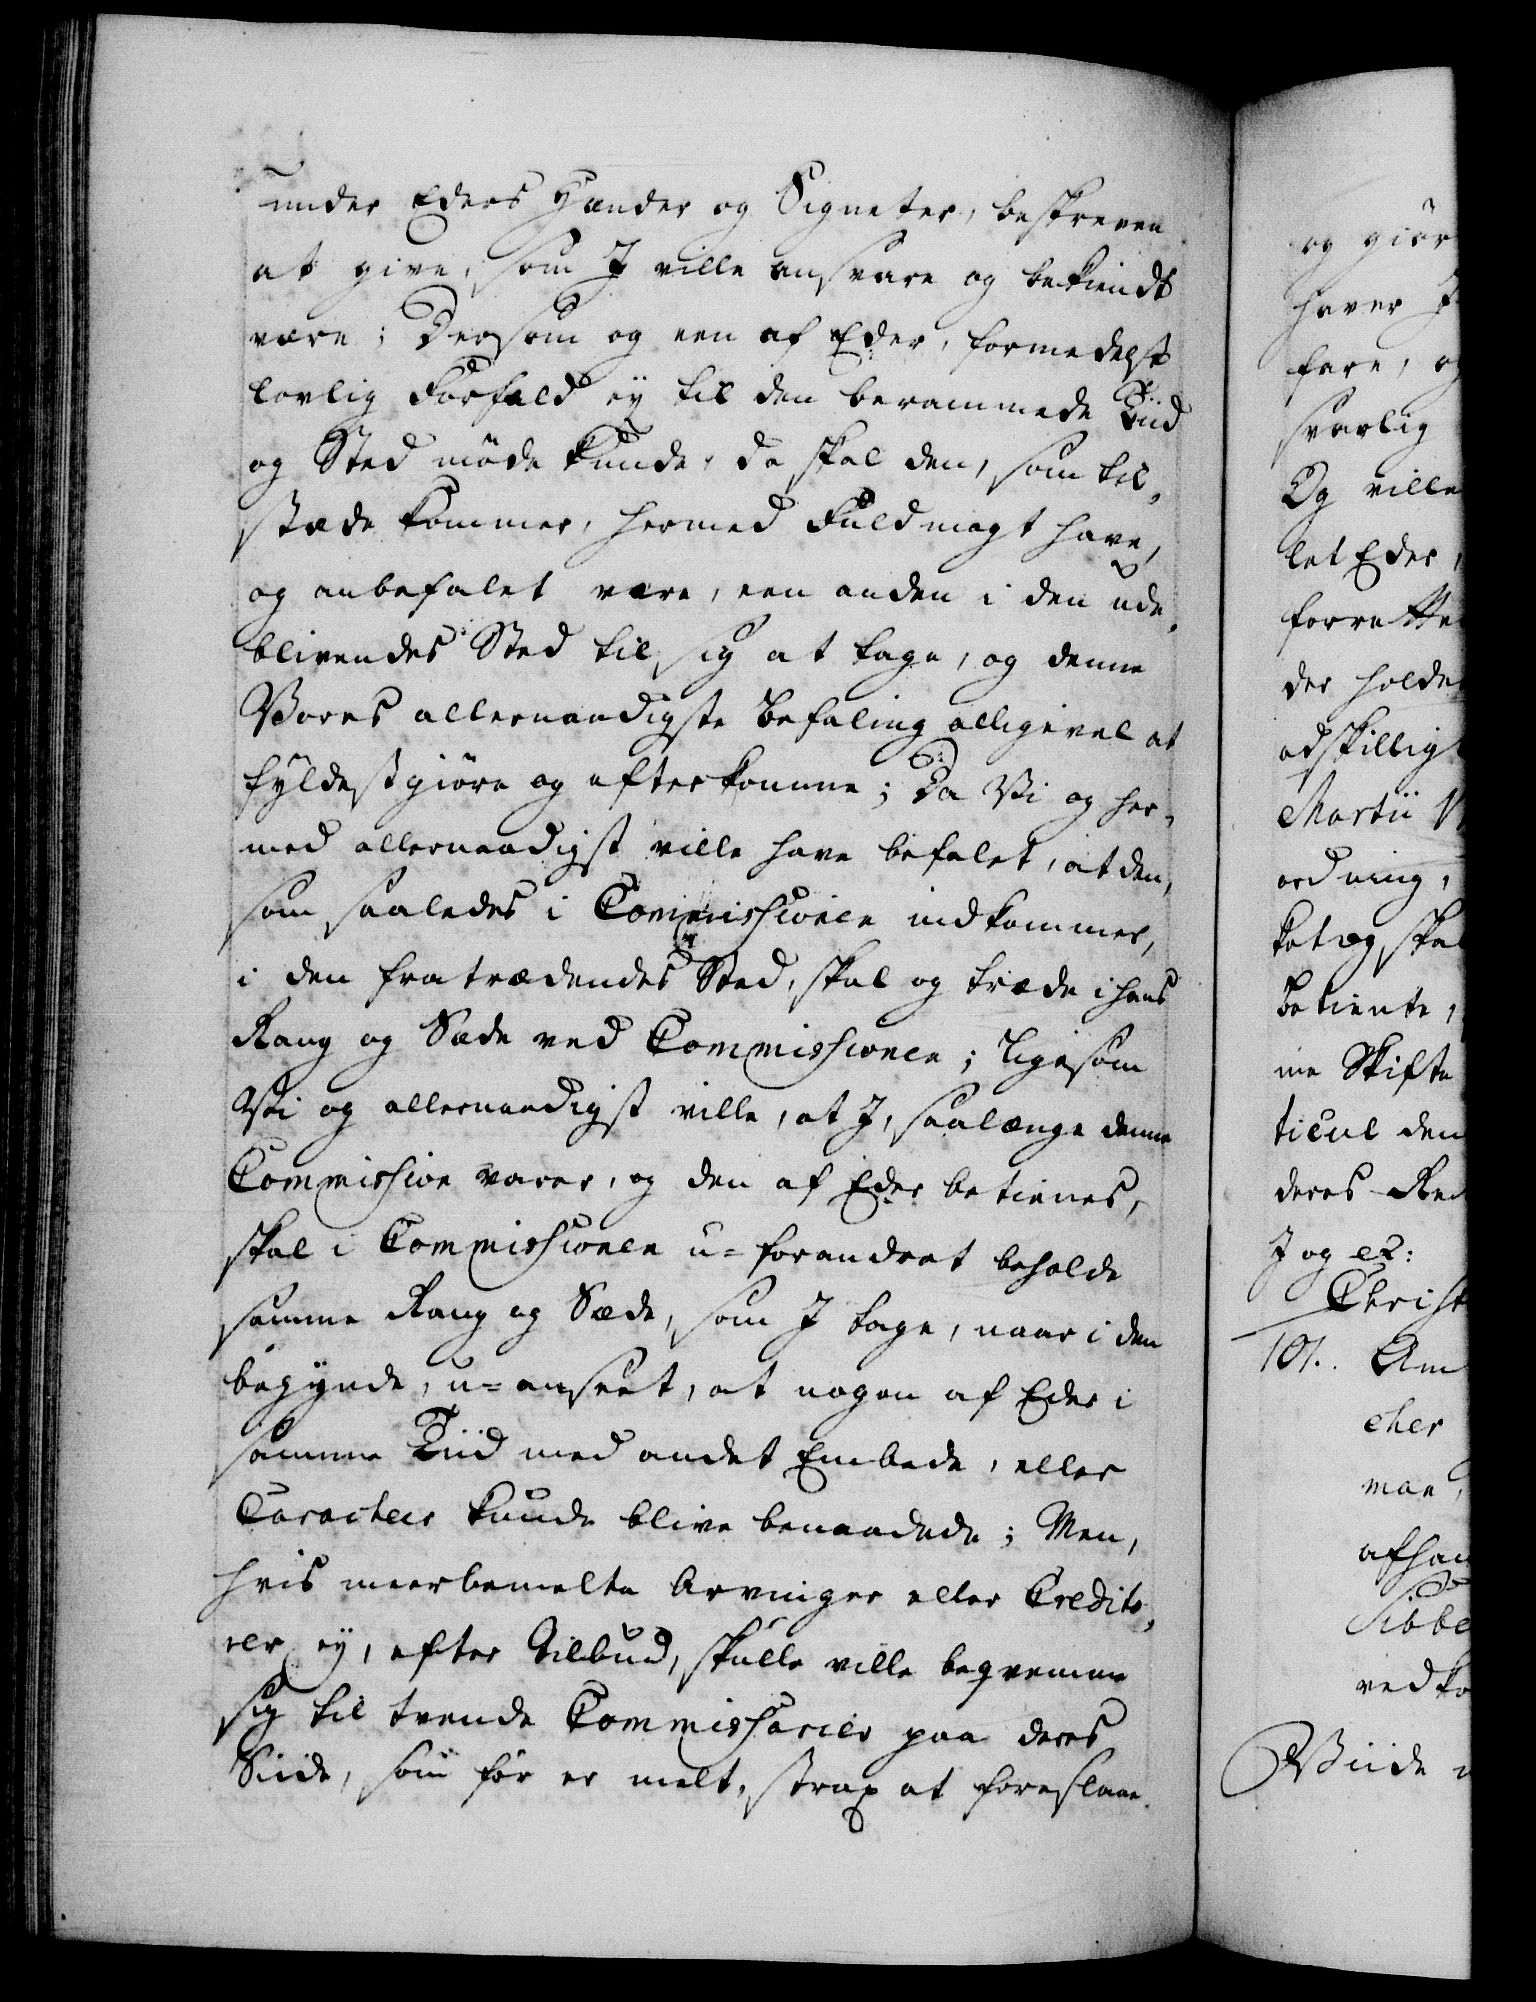 under Eders Hænder og Signeter, beskreven
at give, som I ville ansvare og bekiendt
være; Dersom og een af Eder, formedelst
lovlig Forfald ey til den berammede Tiid
og Sted møde kunde, da skal den, som til-
stæde kommer, hermed Fuldmagt have,
og anbefalet være, een anden i den ude-
blivendes Sted til sig at tage, og denne
Vores allernaadigste Befaling alligevel at
fyldestgiøre og efterkomme; Da Vi og her-
med allernaadigst ville have befalet, at den,
som saaledes i Commissionen indkommer,
i den fratrædendes Sted, skal og træde i hans
Rang og Sæde ved Commissionen; ligesom
Vi og allernaadigst ville, at I, saalænge denne
Commission varer, og den af Eder betienes,
skal i Commissionen u-forandret beholde
samme Rang og Sæde, som I tage, naar i den
begynde, u-anseet, at nogen af Eder i
samme Tiid med andet Embede, eller
Caracteer kunde blive benaadede; Men,
hvis meerbemelte Arvinger eller Credito-
rer ey, efter Tilbud, skulle ville beqvemme
sig til tvende Commissarier paa deres
Siide, som før er melt, strax at foreslaae
og giør
haver I
fare, og
svarlig
Og ville
let Eder,
forrette
der holde
adskillig
Martii
ordning,
ket og skal
betiente,
ne Skifte
ticul den
deres
I og et:
Christ
101. Am
cher
man,
afhan
Sibbe
vedko
Viide